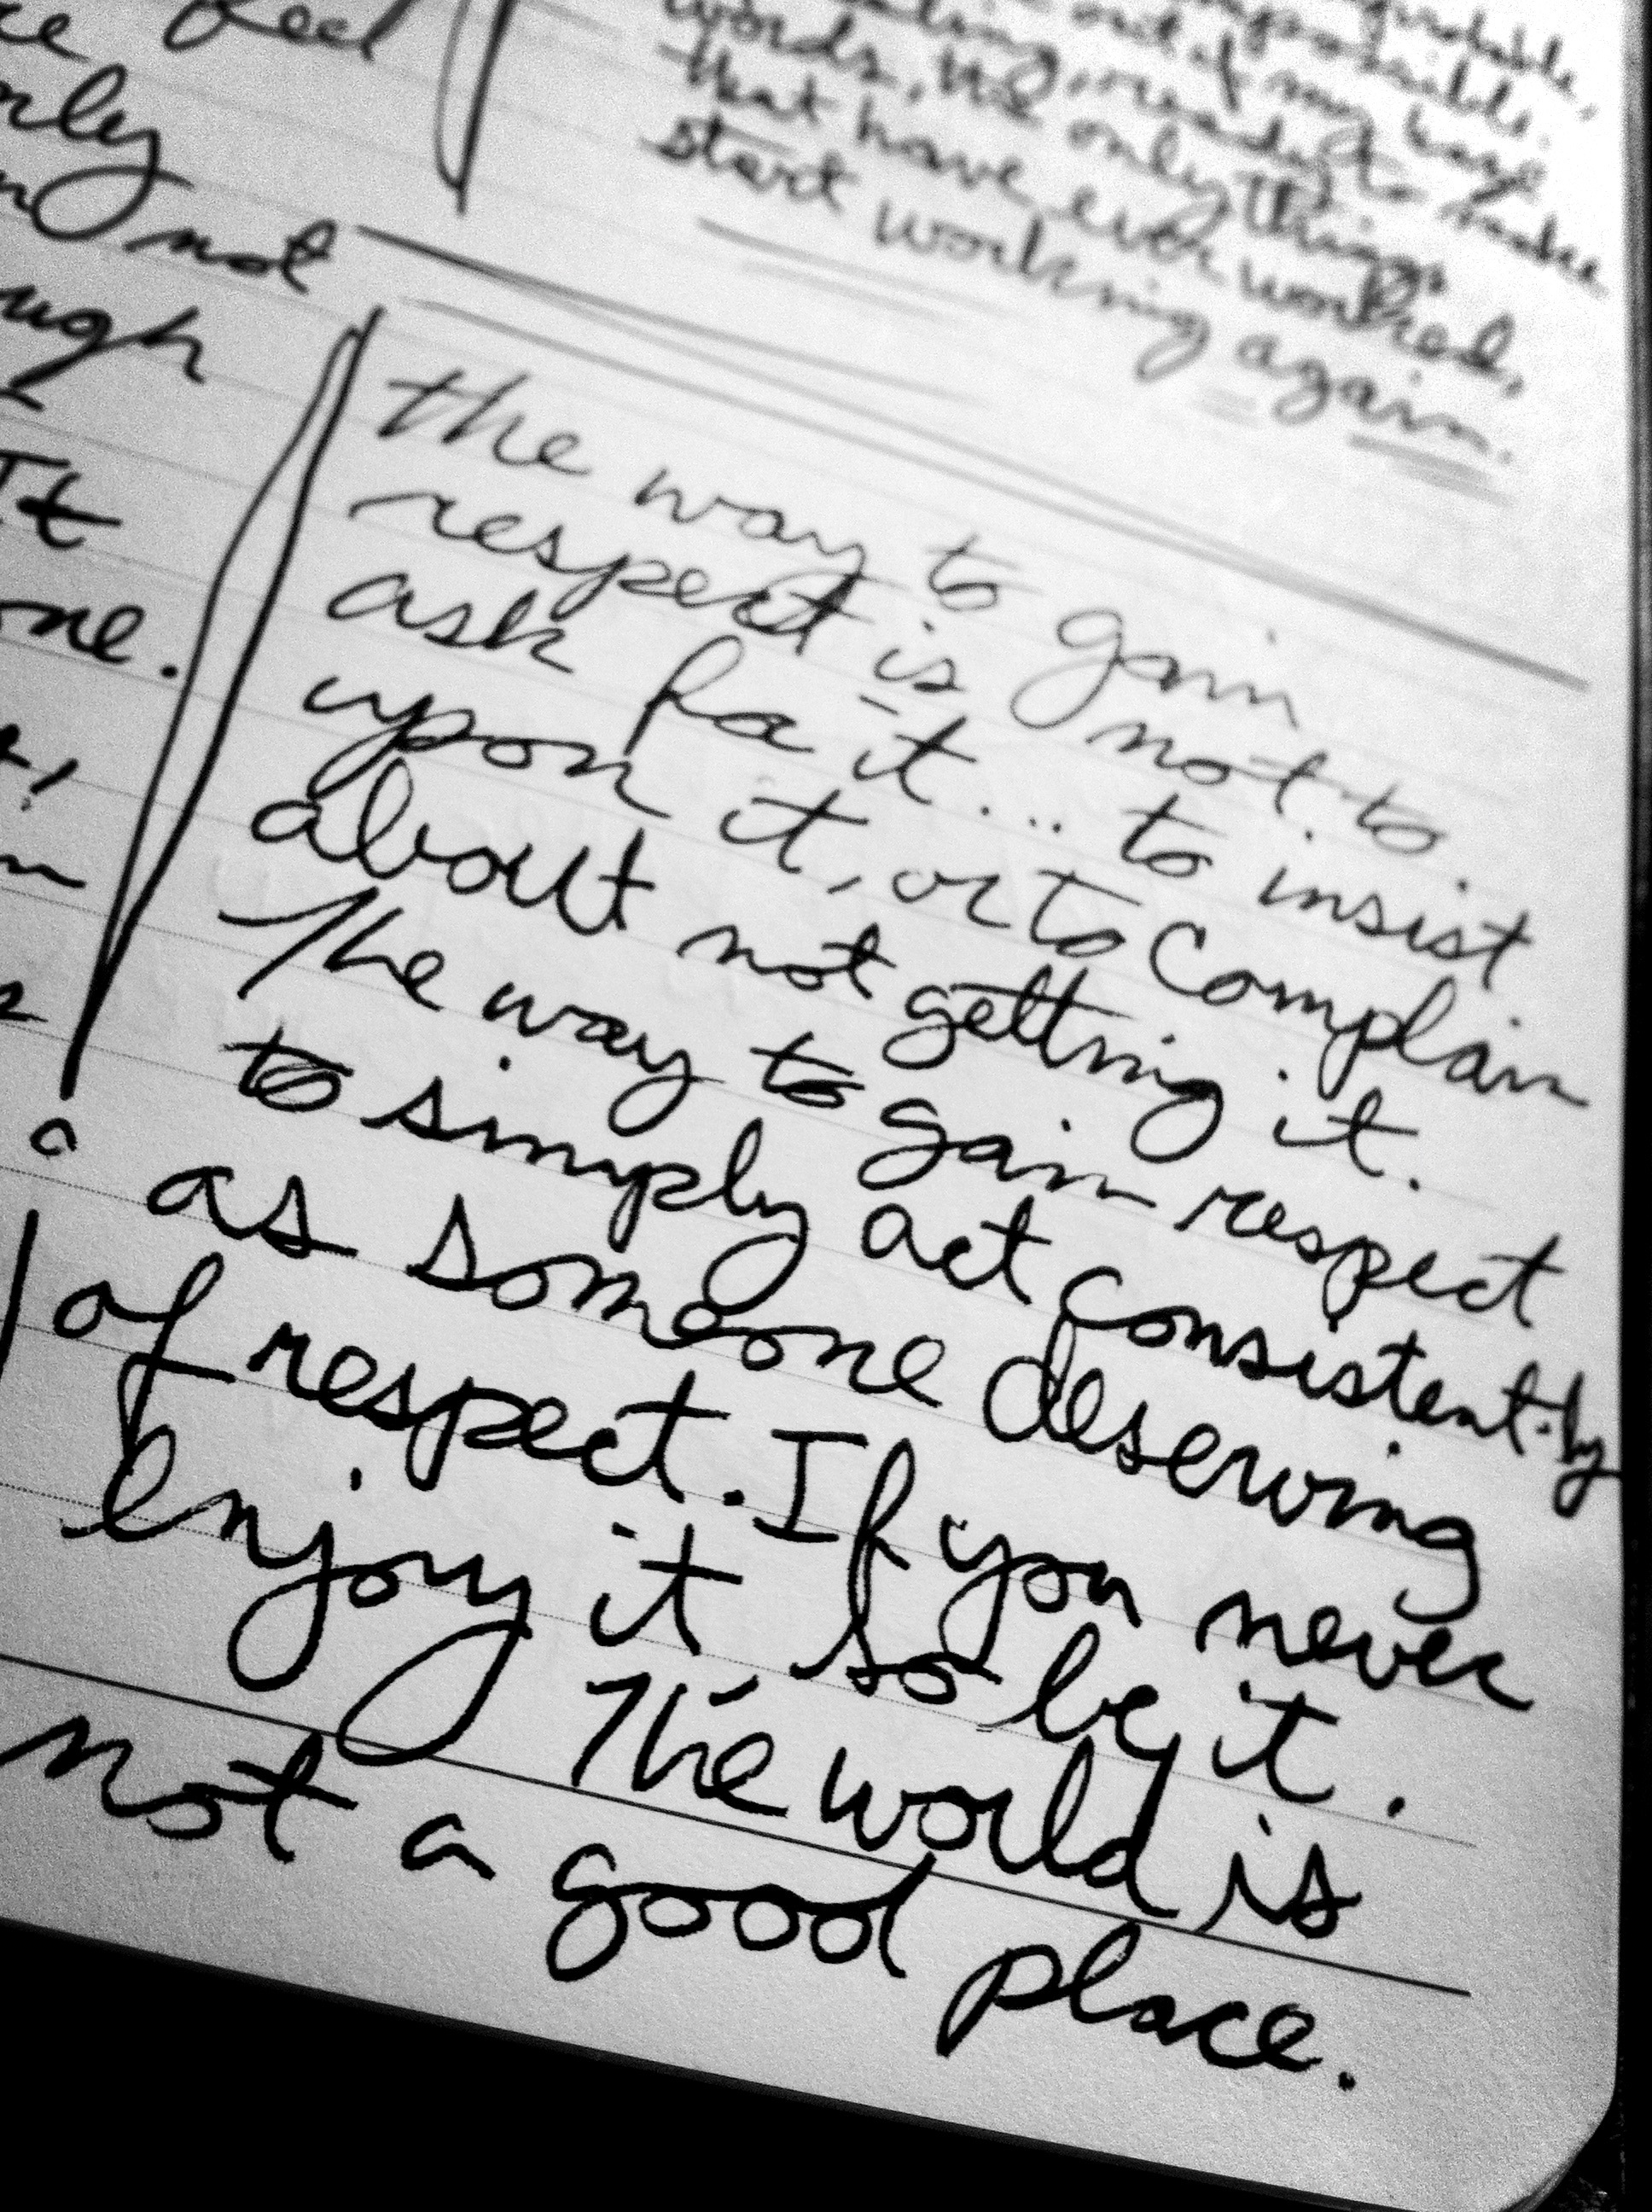 feel
only
not
ugh
It
one.
words, the only things
that have ever worked,
start working again.
the way to gain
respect is not to
ask for it.... to insist
upon it, or to complain
about not getting it.
The way to gain respect
to simply act consistently
as someone deserving
of respect. If you never
enjoy it so be it.
The world is
not a good place.